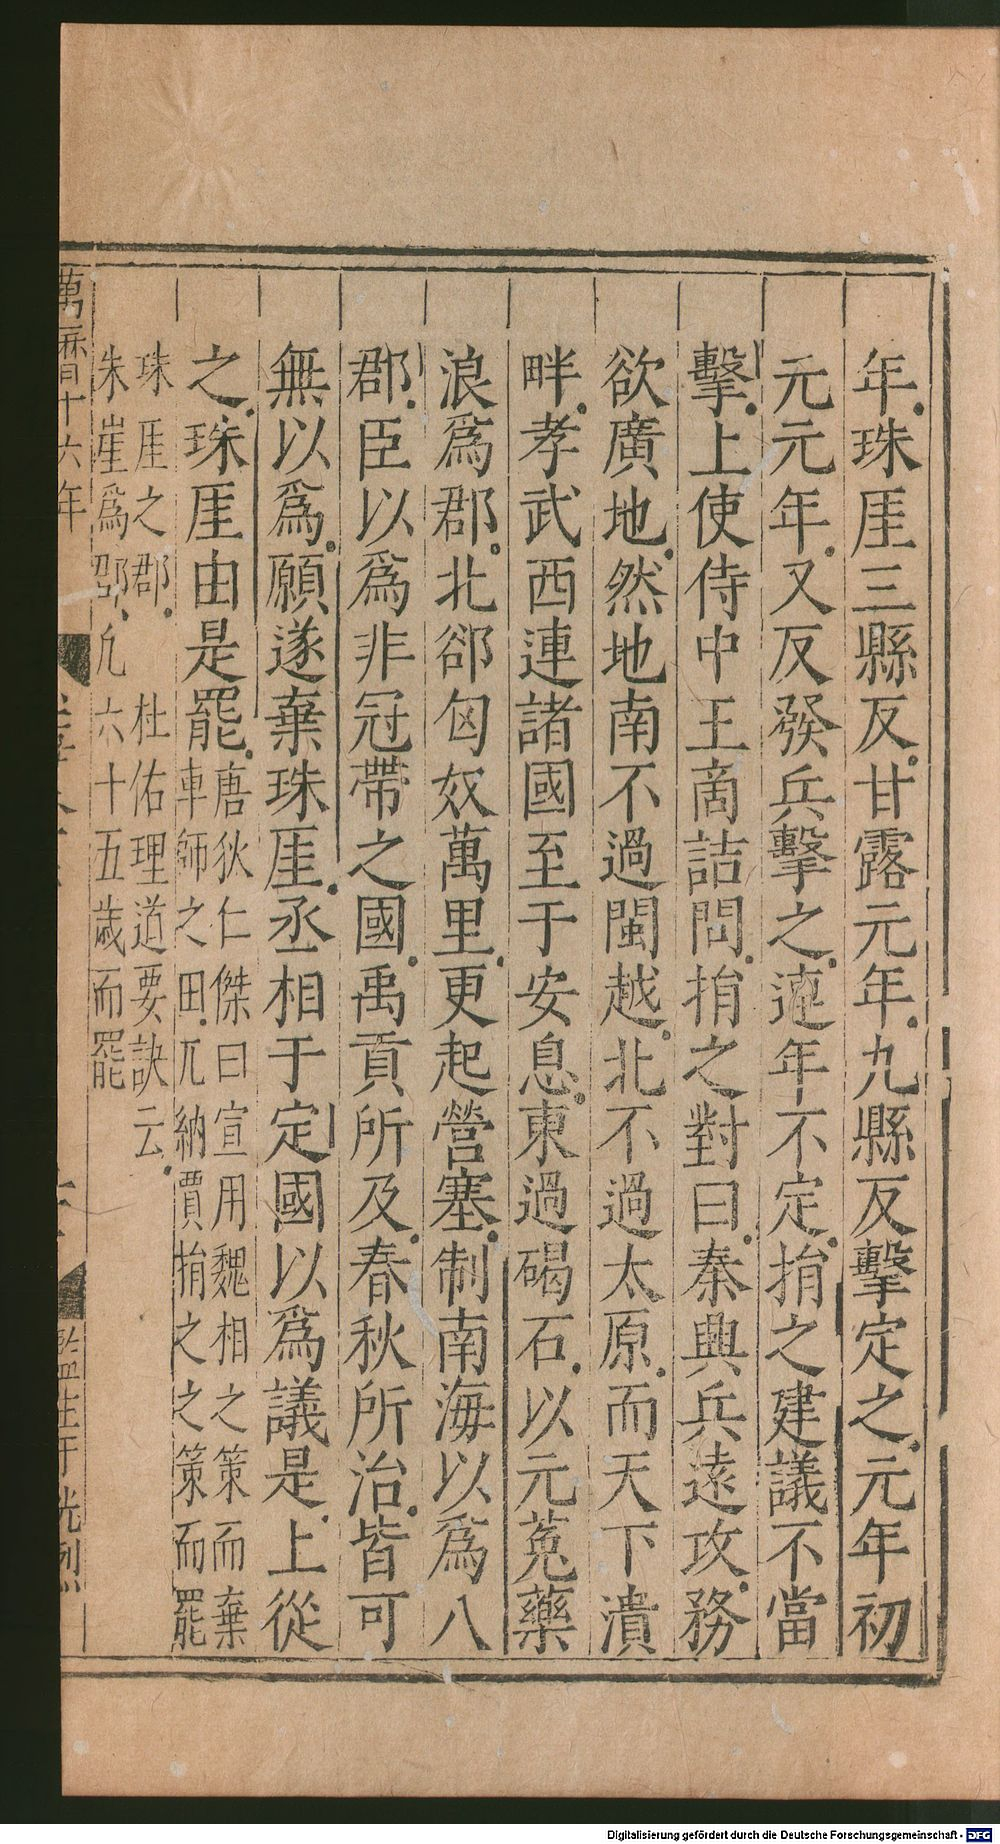 年珠厓三縣反甘露元年九縣反擊定之元年初
元元年又反發兵擊之連年不定捐之建議不當
擊上使侍中王商詰問捐之對曰秦興兵遠攻務
欲廣地然地南不過閩越北不過太原而天下潰
畔孝武西連諸國至于安息東過碣石以元菟藥
浪為郡北郤匈奴萬里更起營塞制南海以為八
郡臣以為非冠帶之國禹貢所及春秋所治皆可
無以為願遂棄珠厓丞相于定國以為議是上從
之珠厓由是罷
唐狄仁傑曰宣用魏相之策而棄
車師之田兀納賈捐之之策而罷
珠厓之郡　杜佑理道要訣云
朱崖為郡凢六十五歲而罷
萬曆十六年
監生于光烈
Digitalisierung gefördert durch die Deutsche Forschungsgemeinschaft - DFG